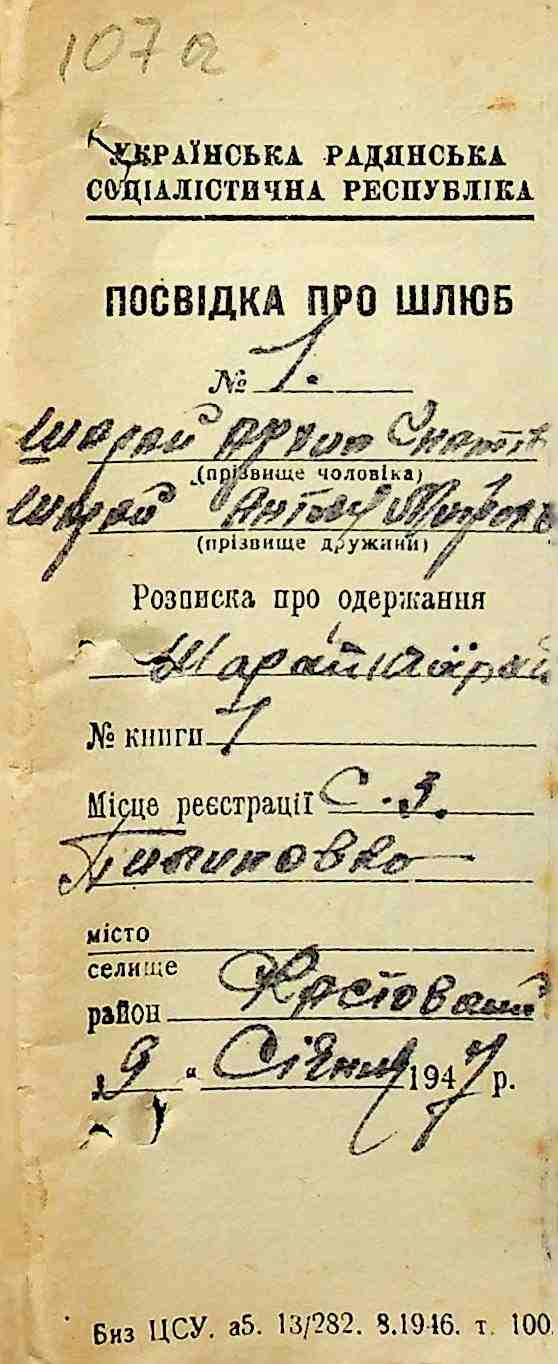 107а
УКРАЇНСЬКА РАДЯНСЬКА
СОЦІАЛІСТИЧНА РЕСПУБЛІКА
ПОСВІДКА ПРО ШЛЮБ
№ 1.
Шарай
(прізвище чоловіка)
Шарай
(прізвище дружини)
Розписка про одержання
Шарай
№ книги 1
Місце реєстрації С. З.
Пилиповка
місто
селище
район
„9 “ Січня 1947 р.
Биз ЦСУ. аб. 13/282. 8.1946. т. 100